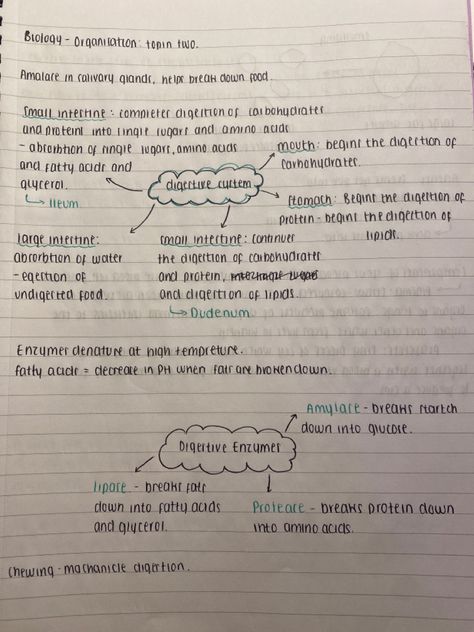 Biology - Organisation: topin two.
Amalase in salivary glands, helps break down food.
Small intestine: completes digestion of carbohydrates
and proteins into single sugars and amino acids
- absorbtion of single sugars, amino acids
and fatty acids and
glycerol.
↳ Ileum.
mouth: begins the digestion of
carbohydrates.
digestive system
Stomach: Begins the digestion of
protein - begins the digestion of
lipids.
large intestine:
absorbtion of water
- egestion of
undigested food.
small intestine: continues
the digestion of carbohydrates
and protein,
and digestion of lipids.
↳ Dudenum.
Enzymes denature at high tempreture.
fatty acids = decrease in PH when fats are broken down.
Amylase - breaks starch
down into glucose.
Digestive Enzymes
lipase - breaks fats
down into fatty acids
and glycerol.
Protease - breaks protein down
into amino acids.
Chewing - machanicle digestion.